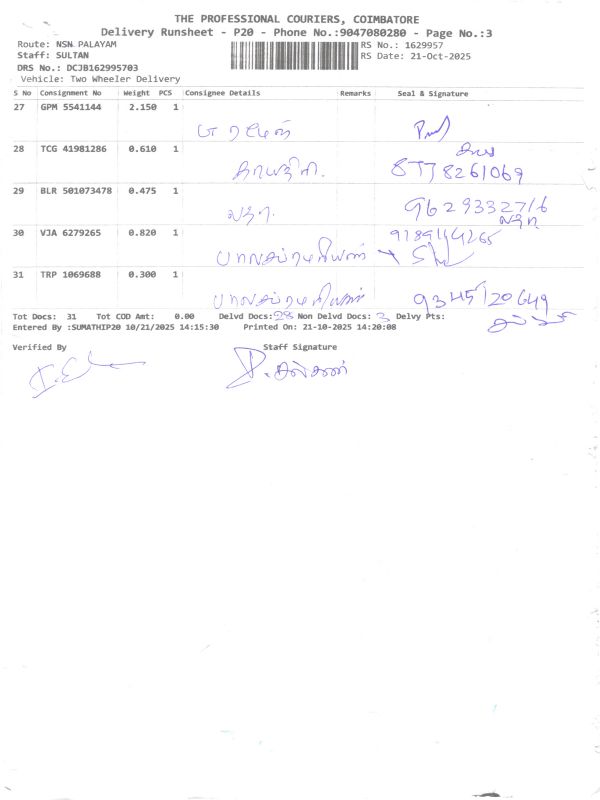 THE PROFESSIONAL COURIERS, COIMBATORE
Delivery Runsheet - P20 - Phone No.:9047080280 - Page No.:3
Route: NSN PALAYAM RS No.: 1629957
Staff: SULTAN RS Date: 21-Oct-2025
DRS No.: DCJB162995703
Vehicle: Two Wheeler Delivery
S No Consignment No Weight PCS Consignee Details Remarks Seal & Signature
27 GPM 5541144 2.150 1
28 TCG 41981286 0.610 1
காயத்ரி. 8778261069
29 BLR 501073478 0.475 1
லதா. 9629332716
லதா
30 VJA 6279265 0.820 1
பாலசுப்ரமணியன்
31 TRP 1069688 0.300 1
பாலசுப்ரமணியன் 9345120649
Tot Docs: 31 Tot COD Amt: 0.00 Delvd Docs: 28 Non Delvd Docs: 3 Delvy Pts:
Entered By :SUMATHIP20 10/21/2025 14:15:30 Printed On: 21-10-2025 14:20:08
Verified By Staff Signature